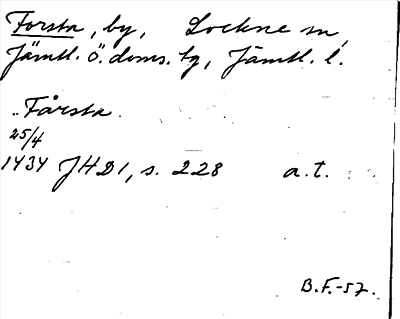 Forsta, by, Lockne sn,
Jämtl. ö. doms. tg, Jämtl. l.
.. Fårsta.
25/4
1434 JHD 1, s. 228 a.t.
B.F.-57.